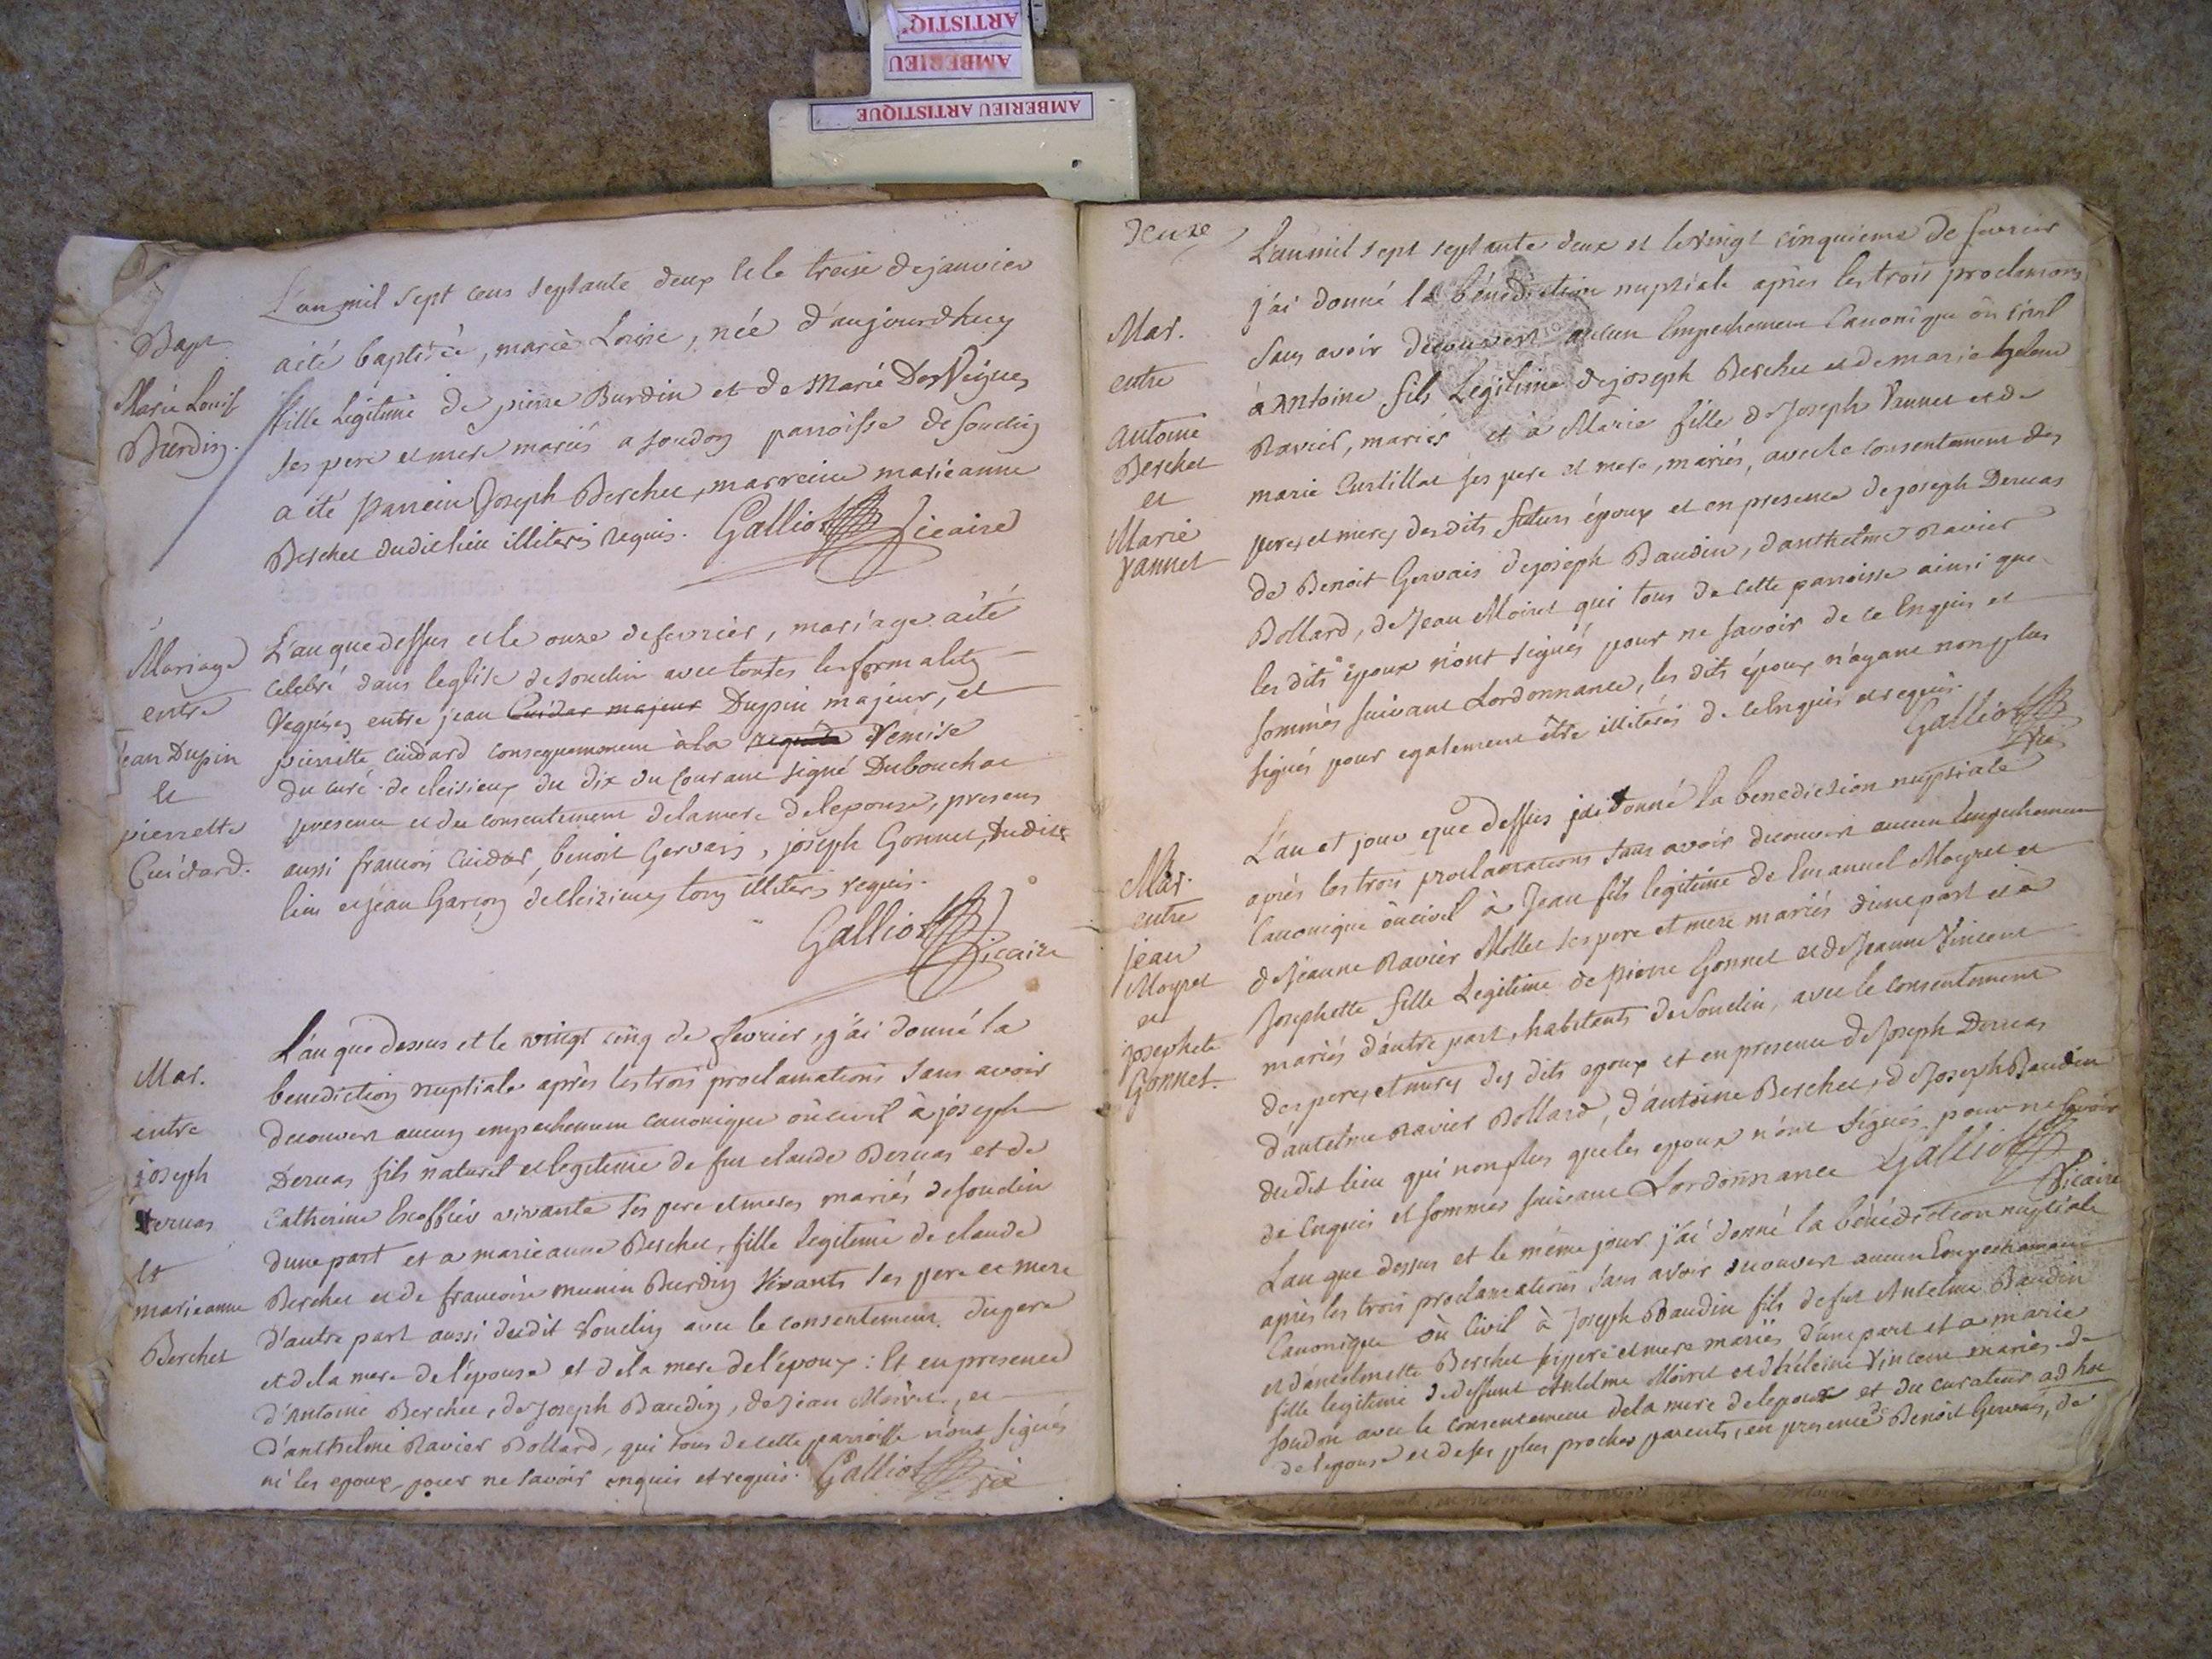 ARTISTIQ
AMBERIEU
AMBERIEU ARTISTIQUE
Bapt
Marie Louise
Burdin.
L'an mil sept cens septante deux et le treise de janvier
a été baptisée, marie Louise, née d'aujourdhuy
fille Légitime de pierre Burdin et de Marie Des Vignes
ses pere et mere mariés a soudon parroisse de souclin
a été parrein Joseph Berchet, marreine marieanne
Berchet dudit lieu illiterés requis. Galliot Vicaire
Mariage
entre
jean Dupin
et
pierrette
Cuidard.
L'an que dessus et le onze de fevrier, mariage a été
celebré dans leglise de souclin avec toutes les formalités
requises entre jean Cuidar majeur Dupin majeur, et
pierrette cuidard consequemment à la remise
du curé de cleisieux du dix du courant signé Dubouchat
presence et du consentement de la mere de lepouse, presens
aussi francois Cuidar, benoit Gervais, joseph Gonnet, dudit
lieu et jean Garçon de cleizieux tous illiterés requis.
Galliot Vicaire
Mar.
entre
joseph
Dervas
et
marieanne
Berchet
L'an que dessus et le vingt cinq de fevrier, j'ai donné la
benediction nuptiale après les trois proclamations sans avoir
decouvert aucun empechement canonique où civil à joseph
Dervas fils naturel et legitime de feu claude Dervas et de
Catherine Escoffier vivante ses pere et mere mariés de souclin
d'une part et a marieanne Berchet, fille legitime de claude
Berchet et de francoise Burdin vivants ses pere et mere
d'autre part aussi dudit Souclin avec le consentement du pere
et de la mere de l'épouse et de la mere de l'époux: Et en presence
d'Antoine Berchet, de Joseph Baudin, de jean Moiret, et
d'anthelme Ravier Dollard, qui tous de cette parroisse n'ont signés
ni les epoux, pour ne savoir enquis et requis. Galliot vic
deuxe
Mar.
entre
antoine
Berchet
et
Marie
vannet
L'an mil sept septante deux et le vingt cinquieme de fevrier
j'ai donné la bénédiction nuptiale après les trois proclamations
sans avoir decouvert aucun Empechement Canonique où civil
à Antoine fils Légitime de joseph Berchet et de marie
Ravier, mariés et à Marie fille de Joseph Vannet et de
marie Curtillat ses pere et mere, mariés, avec le consentement des
peres et meres desdits futurs époux et en presence de joseph Dervas
de Benoit Gervais de joseph Baudin, d'anthelme Ravier
Dollard, de Jean Moiret qui tous de cette parroisse ainsi que
les dits époux n'ont signés pour ne savoir de ce Enquis et
sommés suivant Lordonnance, les dits époux n'ayant non plus
signés pour egalement être illiterés de ce Enquis et requis.
Galliot Vic
Mar.
entre
jean
Moyret
et
josephete
Gonnet.
L'an et jour que dessus j'ai donné la benediction nuptiale
après les trois proclamations sans avoir decouvert aucun Empechement
Canonique où civil à Jean fils legitime de Emanuel Moyret et
de Jeanne Ravier Mollet ses pere et mere mariés d'une part et à
Josephette fille Legitime de pierre Gonnet et de Jeanne Vincent
mariés d'autre part, habitants de Souclin, avec le consentement
des peres et meres des dits epoux et en presence de Joseph Dervas
d'antelme Ravier Dollard, d'antoine Berchet, de Joseph Baudin
dudit lieu qui non plus que les epoux n'ont signés pour ne savoir
de Enquis et sommés suivant Lordonnance Galliot Vicaire
L'an que dessus et le même jour j'ai donné la bénédiction nuptiale
après les trois proclamations sans avoir decouvert aucun Empechement
Canonique où Civil à Joseph Baudin fils de feu Antelme Baudin
et d'antelmette Berchet ses pere et mere mariés d'une part et a marie
fille legitime de deffunt Antelme Moiret et d'héleine Vincent mariés de
soudon avec le consentement de la mere de lepoux et du curateur ad hoc
de lepouse et de ses plus proches parents, en presence de Benoit Gervais, de